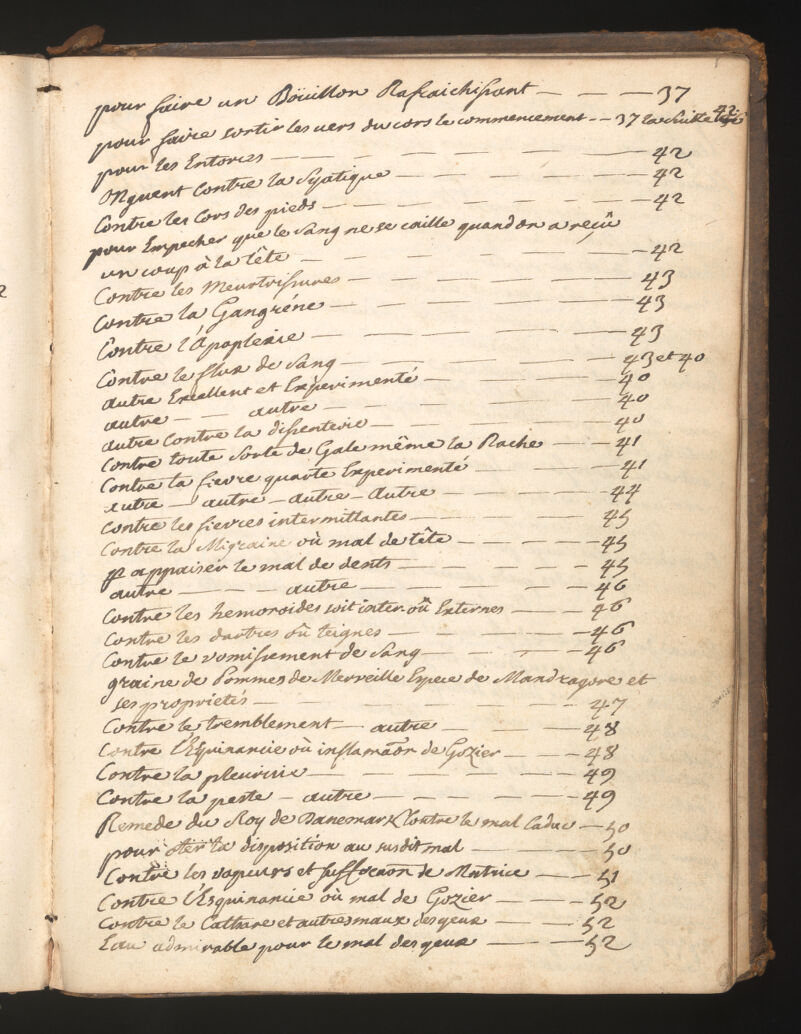 pour faire un Boüillon Rafraichissant — — — 37
pour faire sortir les vers du cors le commencement -- 37 la suitte 42
pour les Entorces — — — — — — — 42
Onguent Contre la Syatique — — — — — 42
Contre les Cors des pieds — — — — — — 42
pour Empecher que le Sang ne se caille quand on a reçû
un coup à la tête — — — — — — — 42
Contre les Meurtrissures — — — — — — 43
Contre la Gangréne — — — — — — 43
Contre l'Apoplexie — — — — — 43
Contre le flux de Sang — — — — — 43 et 40
autre Excellent et Experimenté — — — — 40
autre — — autre — — — — — 40
autre Contre la dissenterie — — — — — 40
Contre toute sorte de Gale même la Rache — — 41
Contre la fievre quarte Experimenté — — — — 41
autre — autre — autre — autre — — — — 44
Contre les fievres intermittantes — — — — 45
Contre la Migraine où mal de tête — — — — 45
pr appaiser le mal de dents — — — — — 45
autre — — — autre — — — — — 46
Contre les hemoroides soit inter. où Externes — — — 46
Contre les dartres où teignes — — — — — 46
Contre le vomissement de Sang — — — — 46
graine de Pommes de Merveille Espece de Mandragore et
ses proprietés — — — — — — — 47
Contre le tremblement — autre — — — — 48
Contre l'Esquinancie où inflamãon de Gozier — — — 48
Contre la pleurisie — — — — — — 49
Contre la peste — autre — — — — — 49
Remede du Roy de Danemarx Contre le mal Caduc — 50
pour ôter la disposition au susdit mal — — — 50
Contre les vapeurs et suffocãon de Matrice — — — 51
Contre l'Esquinancie où mal de Gozier — — — — 52
Contre le Cathare et autres maux des yeux — — — 52
Eau admirable pour le mal des yeux — — — — 52